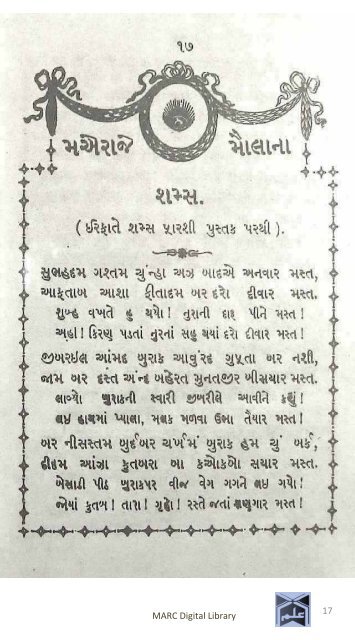 ૧૭
મએરાજે મૌલાના
શમ્સ.
( ઈરફાતે શમ્સ ફારશી પુસ્તક પરથી ).
સુબહદમ ગશ્તમ ચુંન્હા અઝ બાદએ અનવાર મસ્ત,
આફતાબ આશા ફીતાદમ બર દરો દીવાર મસ્ત.
શુબ્હ વખતે હુ થયો! નુરાની દારૂ પીને મસ્ત!
અહા! કિરણ પડતાં નુરનાં સહુ થયાં દરો દીવાર મસ્ત!
જીબરઇલ આંમદ બુરાક આવુંરદ ગુફતા બર નશી,
જામ બર દસ્ત અંન્દ બહેરત મુનતજીર બીસયાર મસ્ત.
લાવ્યો બુરાકની સ્વારી જીબરીલે આવીને કહ્યું!
લઇ હાથમાં પ્યાલા, મલક મળવા ઉભા તૈયાર મસ્ત!
બર નીસસ્તમ બુર્દબર ચર્ખમં બુરાક હમ ચું બર્ક,
દીદમ આંજા કુતબરા બા કઓકબો સયાર મસ્ત.
બેસાડી પીઠ બુરાકપર વીજ વેગ ગગને લઇ ગયો!
જોયાં કુતબ! તારા! ગૃહો! રસ્તે જતાં શણગાર મસ્ત!
MARC Digital Library
علم
17